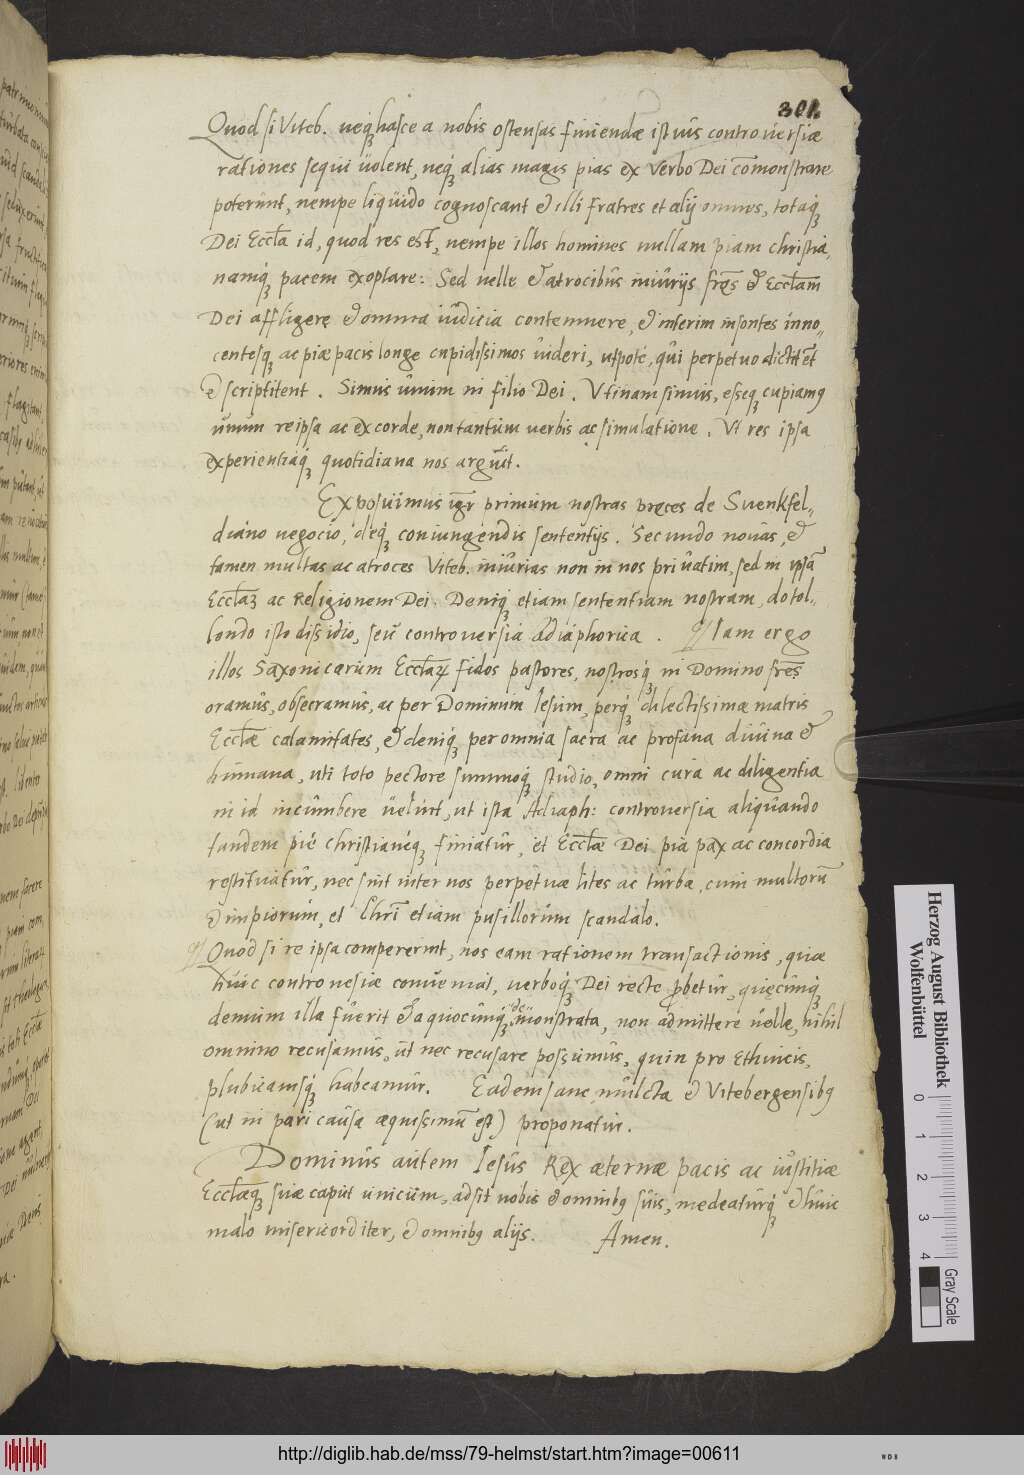 301.
Quod si Viteb. neq̃ hasce a nobis ostensas finiendæ istius controversiæ
rationes sequi volent, neq̃ alias magis pias ex Verbo Dei com̃onstrare
poterunt, nempe liquido cognoscant & illi fratres et alij omnes, totaq̃
Dei Eccl̃a id, quod res est, nempe illos homines nullam piam christia„
namq̃ pacem exoptare: Sed velle & atrocibus iniurijs fr̃es & Eccl̃am
Dei affligere & omnia iudicia contemnere, & interim insontes inno„
centesq̃ ac piæ pacis longe cupidissimos videri, utpote, qui perpetuo dictitẽt
& scriptitent. Simus unum in filio Dei. Utinam simus, esseq̃ cupiamꝰ
unum reipsa ac ex corde, non tantum verbis ac simulatione. Ut res ipsa
experientiaq̃ quotidiana nos arguit.
Exposuimus igr̃ primum nostras preces de Suenkfel„
diano negocio, deq̃ coniungendis sententijs. Secundo novas, &
tamen multas ac atroces Viteb. iniurias non in nos privatim, sed in ipsã
Eccl̃az ac Religionem Dei. Deniq̃ etiam sententiam nostram, de tol„
lendo isto dissidio, seu controversia Adiaphorica. Iam ergo
illos Saxonicarum Eccl̃aꝝ fidos pastores, nostrosq̃ in Domino fr̃es
oramus, obsecramus, ac per Dominum Iesum, perq̃ dilectissimæ matris
Eccl̃æ calamitates, & deniq̃ per omnia sacra ac profana divina &
humana, uti toto pectore summoq̃ studio, omni cura ac diligentia
in id incumbere velint, ut ista Adiaph: controversia aliquando
tandem piè christianeq̃ finiatur, et Eccl̃æ Dei pia pax ac concordia
restituatur, nec sint inter nos perpetuæ lites ac turbæ, cum multorũ
& impiorum, et Chr̃i etiam pusillorum scandalo.
Quod si re ipsa compererint, nos eam rationem transactionis, quiæ
huic controversiæ conveniat, verboq̃ Dei recte ꝓbetur, quęcunq̃
demum illa fuerit & a quocunq̃ demonstrata, non admittere velle, nihil
omnino recusamus, ut nec recusare possumus, quin pro Ethnicis,
plubicanisq̃ habeamur. Eadem sane mulcta & Vitebergensibꝰ
(ut in pari causa æquissimũ est) proponatur.
Dominus autem Iesus Rex æternæ pacis ac iustitiæ
Eccl̃æq̃ suæ caput unicum, adsit nobis & omnibꝰ suis, medeaturq̃ & huic
malo misericorditer, & omnibꝰ alijs. Amen.
Herzog August Bibliothek
Wolfenbüttel
0 1 2 3 4
Gray Scale
http://diglib.hab.de/mss/79-helmst/start.htm?image=00611